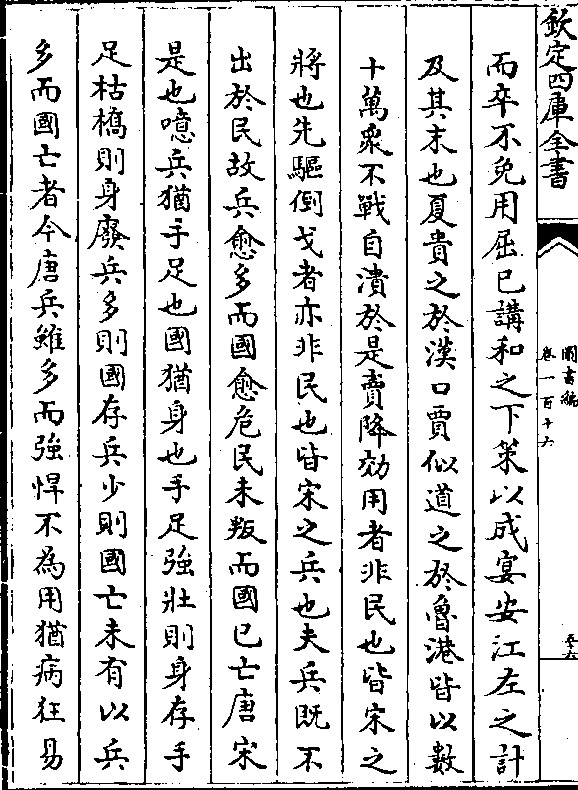 欽定四庫全書
圖書編
卷一百十六
而卒不免用屈已講和之下策以成宴安江左之計
及其末也夏貴之於漢口賈似道之於魯港皆以數
十萬衆不戰自潰於是賣降効用者非民也皆宋之
將也先驅倒戈者亦非民也皆宋之兵也夫兵既不
出於民故兵愈多而國愈危民未叛而國已亡唐宋
是也噫兵猶手足也國猶身也手足強壯則身存手
足枯槁則身廢兵多則國存兵少則國亡未有以兵
多而國亡者今唐兵雖多而強悍不為用猶病狂易